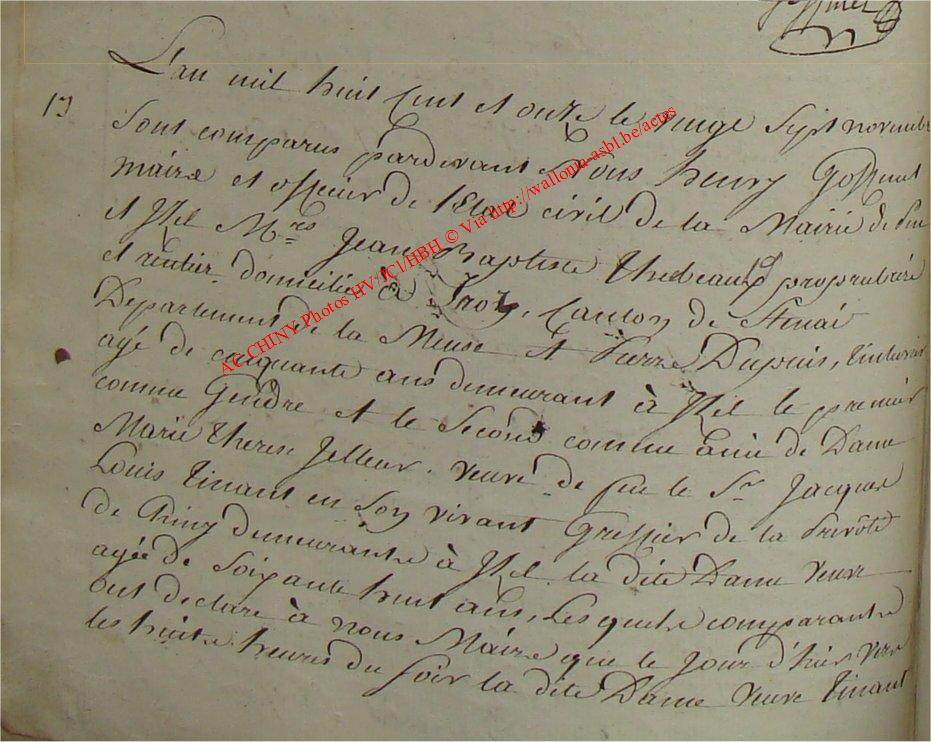 L'an mil huit Cent et onze le vingt Sept novembre
17
Sont comparus pardevant Nous henry Goffinet
maire et officier de l'Etat civil de la Mairie de Pin
et Izel Mrs Jean Baptiste Thiebeault propriétaire
et rentier domicilié à Inor, Canton de Stenai
Departement de la Meuse et Pierre Dupuis, Tinturier
agé de cinquante ans demeurant à Izel le premier
comme Gendre et le Second comme amie de Dame
Marie Therese Jelleur veuve de feu le Sr Jacques
Louis Tinant en Son vivant Greffier de la Prévôté
de Chiny demeurante à Izel la dite Dame veuve
agée de Soixante huit ans, Les quels comparants
ont declaré à nous Maire que le jour d'hier vers
les huite heures du Soir la dite Dame veuve Tinant
AC CHINY Photos HV/JCl/HBH © Via http://wallonia-asbl.be/actes